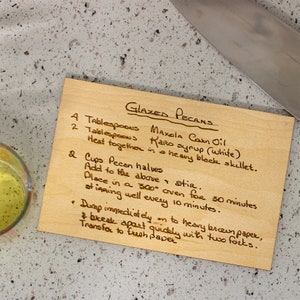 Glazed Pecans
4 Tablespoons Mazola Corn Oil
2 Tablespoons Karo syrup (white)
Heat together in a heavy black skillet.
2 Cups Pecan halves
Add to the above & stir.
Place in a 300° oven for 30 minutes
stirring well every 10 minutes.
• Dump immediately on to heavy brown paper.
& break apart quickly with two forks.
Transfer to fresh paper